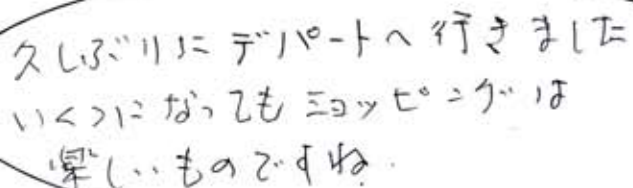 久しぶりに デパートへ 行きました
いくつに なっても ショッピングは
楽しいものですね.